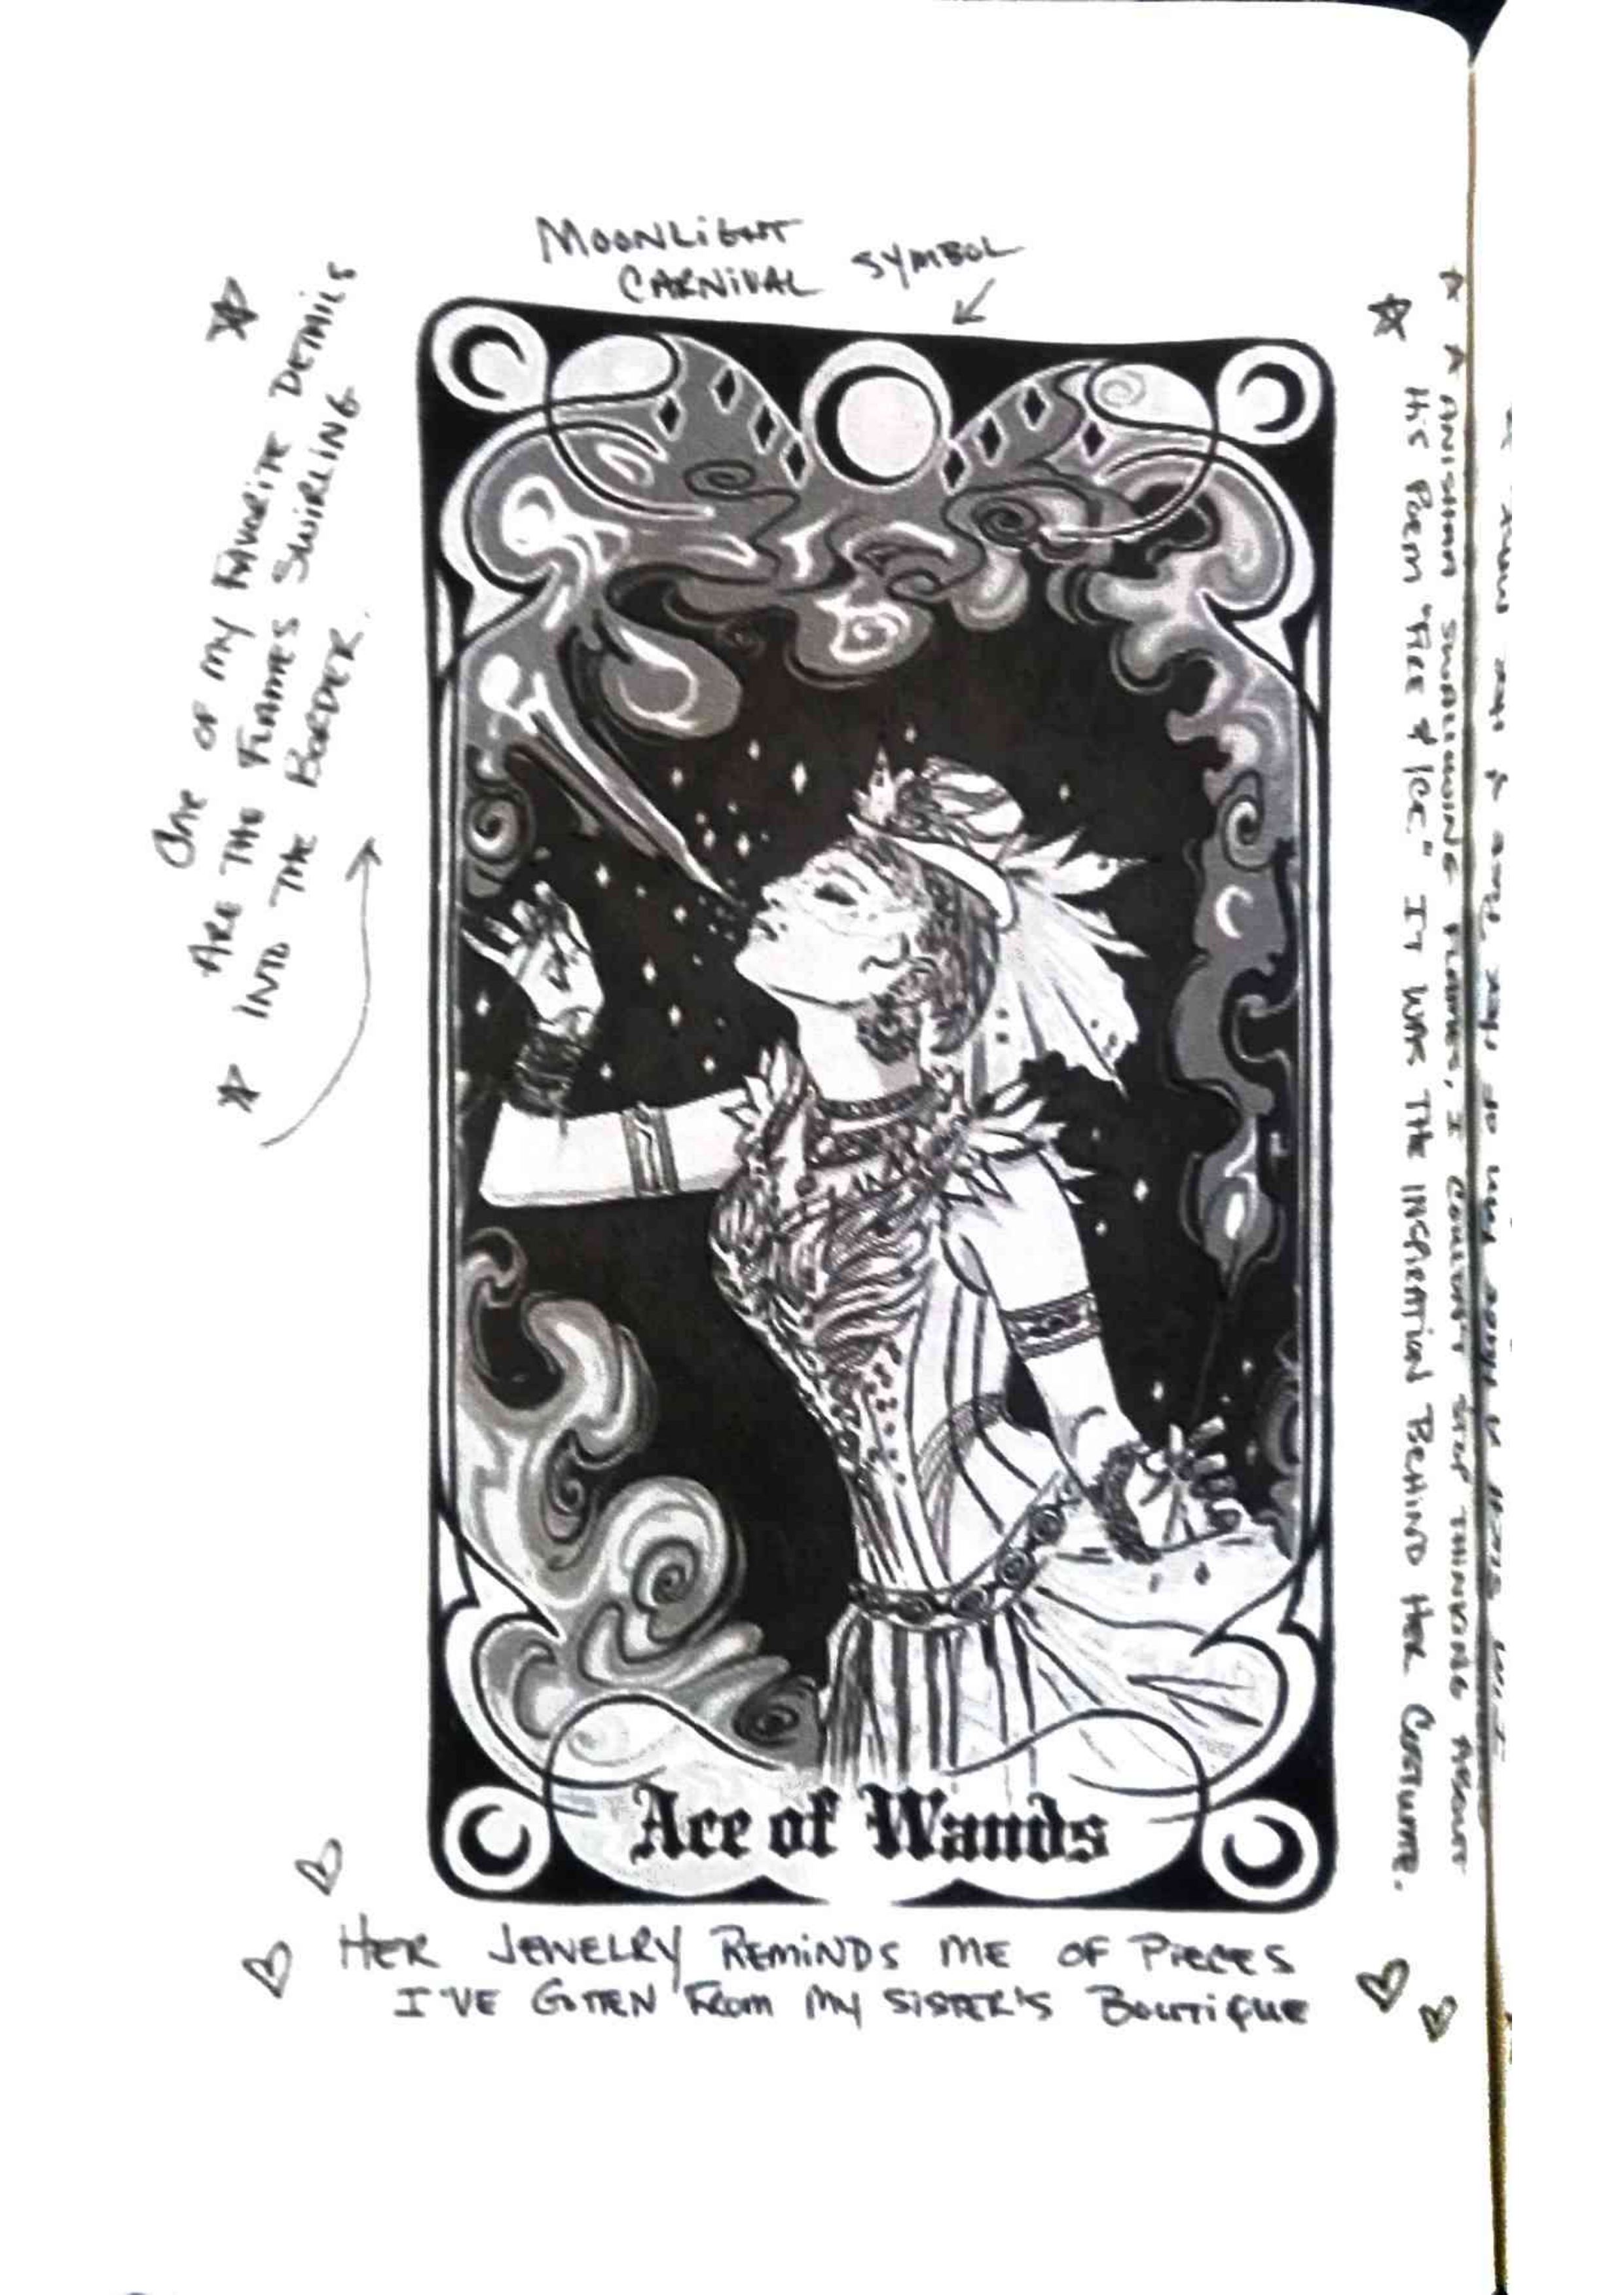 MOONLIGHT
CARNIVAL SYMBOL
ONE OF MY FAVORITE DETAILS
ARE THE FLAMES SWIRLING
INTO THE BORDER.
SWALLOWING FLAMES, I COULDN'T STOP THINKING ABOUT
HIS POEM "FIRE & ICE." IT WAS THE INSPIRATION BEHIND HER COSTUME.
Ace of Wands
HER JEWELRY REMINDS ME OF PIECES
I'VE GOTTEN FROM MY SISTER'S BOUTIQUE